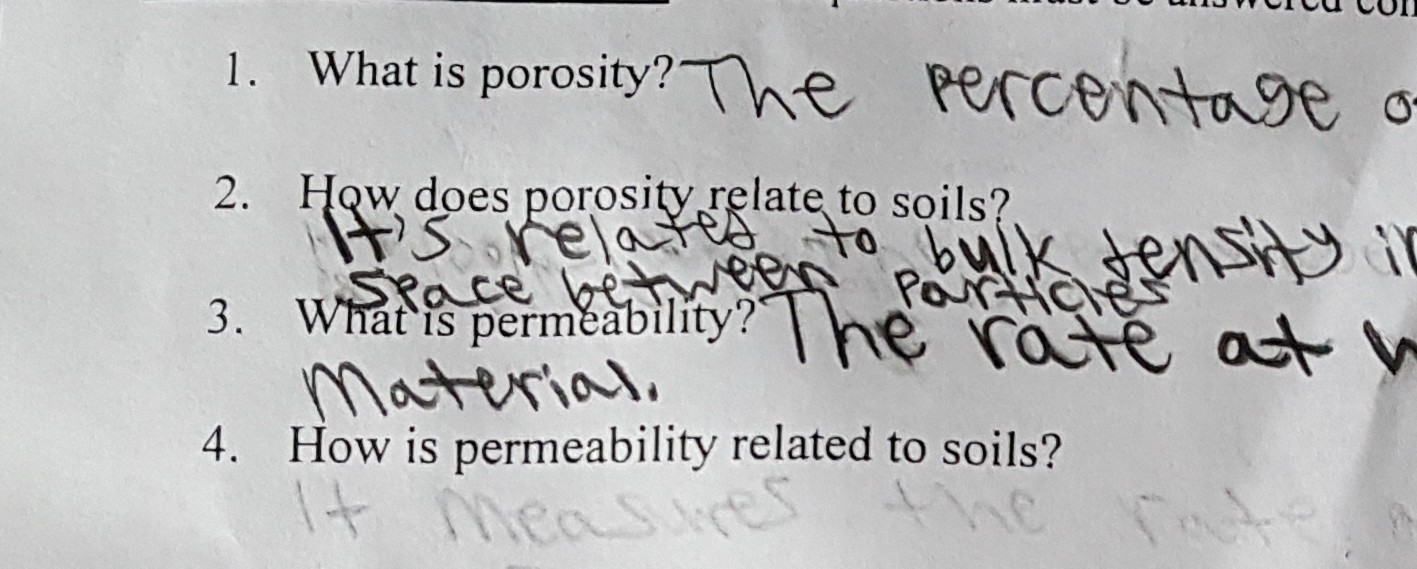 be answered
1. What is porosity? The percentage
2. How does porosity relate to soils?
It's related to bulk density
space between particles
3. What is permeability? The rate at
Material.
4. How is permeability related to soils?
It measures the rate